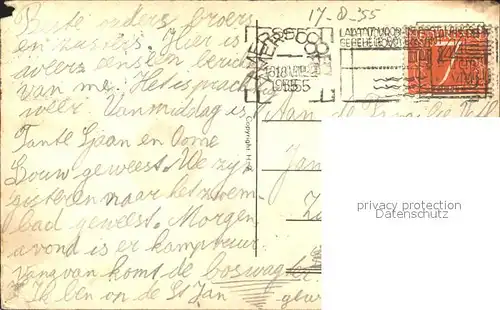 17-8-'55
Beste ouders broers
en zusters. Hier is
weer eens een bericht
van me. Het is prachtig
weer. Van middag is
Tante Sjaan en Oome
Louw geweest. We zijn
gisteren naar het zwem-
bad geweest. Morgen
avond is er kampvuur
komt de boswagter.
Ik ben op de St Jan
gew
AMERSFOORT
1955
7
Copyright
Aan de Familie
Jan
privacy protection
Datenschutz